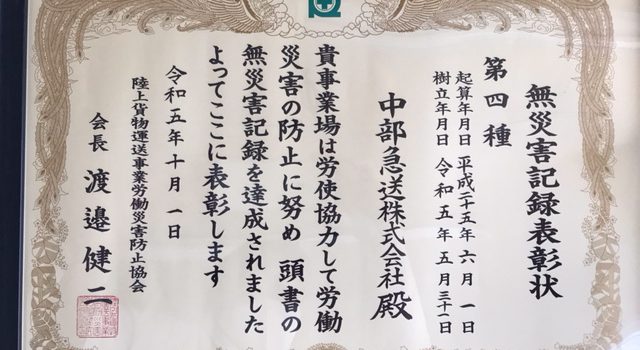 無災害記録表彰状
第四種
起算年月日 平成二十五年六月一日
樹立年月日 令和五年五月三十一日
中部急送株式会社殿
貴事業場は労使協力して労働
災害の防止に努め 頭書の
無災害記録を達成されました
よってここに表彰します
令和五年十月一日
陸上貨物運送事業労働災害防止協会
会長 渡邉健二